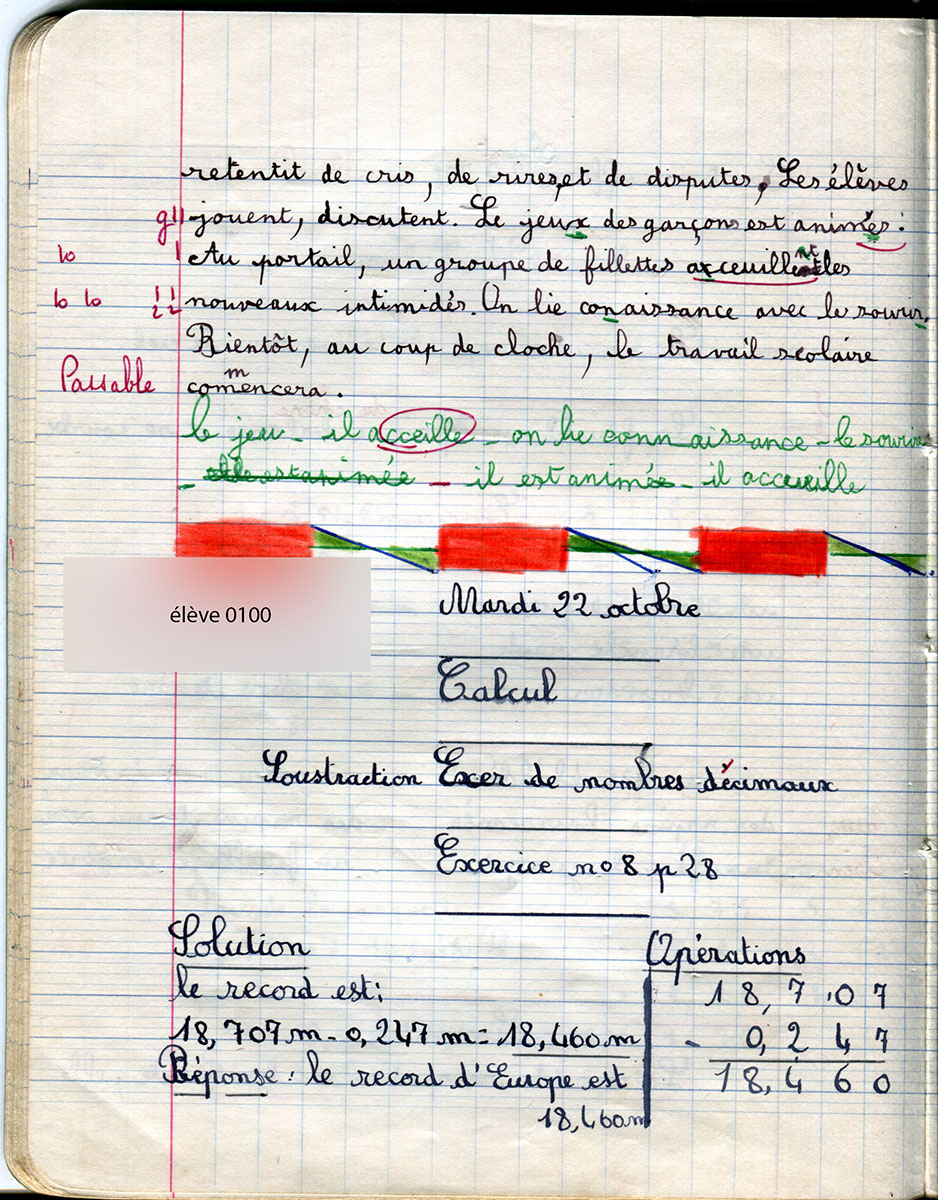 retentit de cris, de rires, et de disputes, Les élèves
g !! jouent, discutent. Le jeux des garçons est animés :
b ! Au portail, un groupe de fillettes axceuillent les
b b !! nouveaux intimidés. On lie conaissance avec le sourir.
Bientôt, au coup de cloche, le travail scolaire
m
Passable comencera.
le jeu - il acceille - on lie connaissance - le sourire
- elle est animée - il est animée - il accueille
élève 0100
Mardi 22 octobre
Calcul
Soustraction Exer de nombres décimaux
Exercice no 8 p 28
Solution
Opérations
le record est :
18,707m - 0,247m = 18,460m
Réponse : le record d'Europe est
18,460m
18,707
- 0,247
18,460